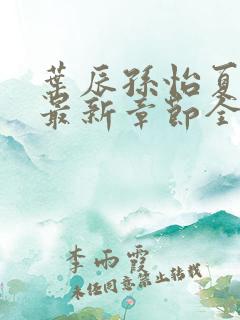 葉辰孫怡夏
最新章節全
李雨霞
未经同意禁止转载